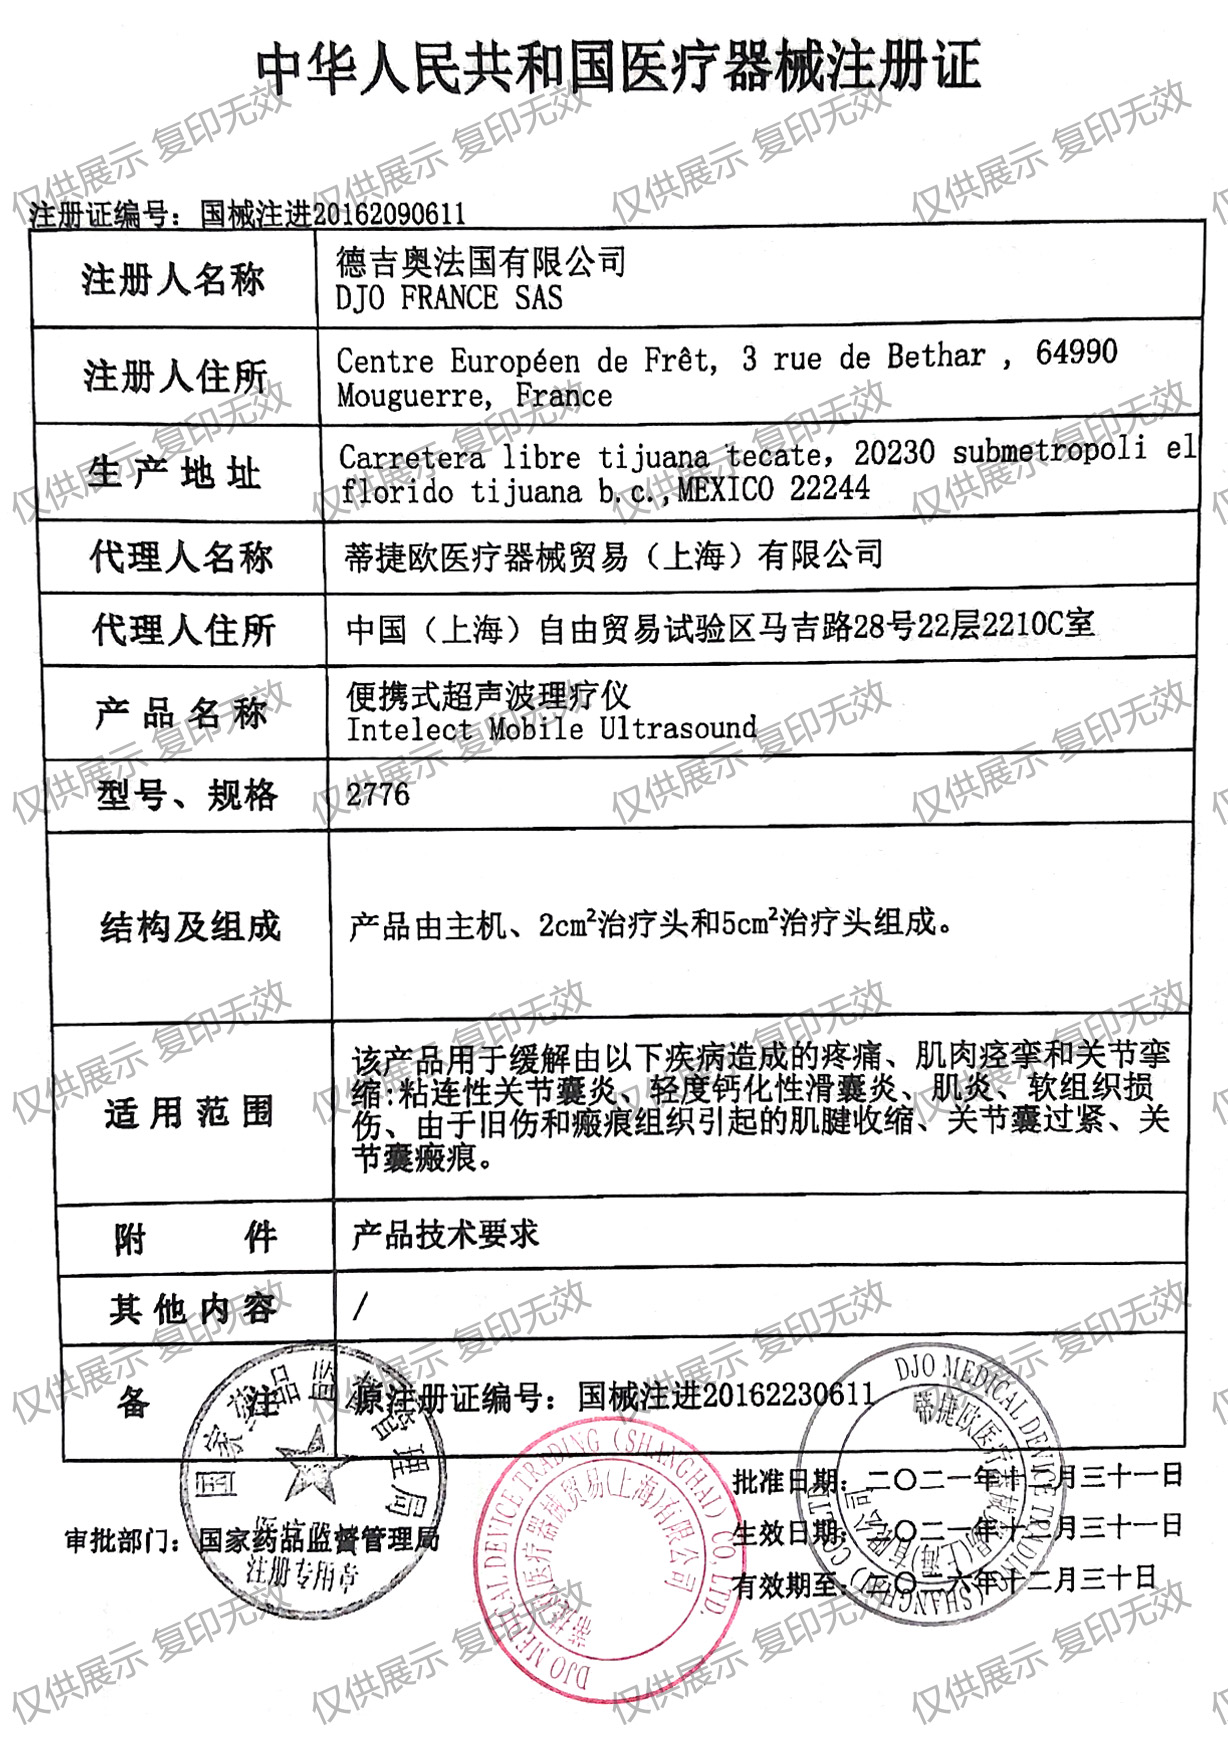 中华人民共和国医疗器械注册证
注册证编号：国械注进20162090611
注册人名称
德吉奥法国有限公司
DJO FRANCE SAS
注册人住所
Centre Européen de Frêt, 3 rue de Bethar , 64990
Mouguerre, France
生产地址
Carretera libre tijuana tecate, 20230 submetropoli el
florido tijuana b.c.,MEXICO 22244
代理人名称
蒂捷欧医疗器械贸易（上海）有限公司
代理人住所
中国（上海）自由贸易试验区马吉路28号22层2210C室
产品名称
便携式超声波理疗仪
Intelect Mobile Ultrasound
型号、规格
2776
结构及组成
产品由主机、2cm²治疗头和5cm²治疗头组成。
适用范围
该产品用于缓解由以下疾病造成的疼痛、肌肉痉挛和关节挛
缩:粘连性关节囊炎、轻度钙化性滑囊炎、肌炎、软组织损
伤、由于旧伤和瘢痕组织引起的肌腱收缩、关节囊过紧、关
节囊瘢痕。
附件
产品技术要求
其他内容
/
备注
原注册证编号：国械注进20162230611
批准日期：二〇二一年十二月三十一日
审批部门：国家药品监督管理局
生效日期：二〇二一年十二月三十一日
有效期至：二〇二六年十二月三十日
国家药品监督管理局
医疗器械
注册专用章
DJO MEDICAL DEVICE TRADING (SHANGHAI) CO., LTD.
蒂捷欧医疗器械贸易(上海)有限公司
DJO MEDICAL DEVICE TRADING (SHANGHAI) CO., LTD.
蒂捷欧医疗器械贸易(上海)有限公司
仅供展示 复印无效